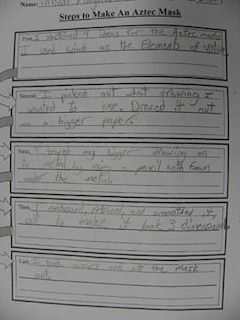 Name:
Steps to Make An Aztec Mask
First, I sketched 4 ideas for the Aztec mask
I used wind as the Element of
Second, I picked out what drawing I
wanted to use. Draced it out
on a bigger paper.
Next, I my bigger drawing on
to metal by using a pencil with foam
under the metal
Then, I embossed, and smoothed it
out to make it look 3 dimensional
Last, I took scissors and cut the mask
out.